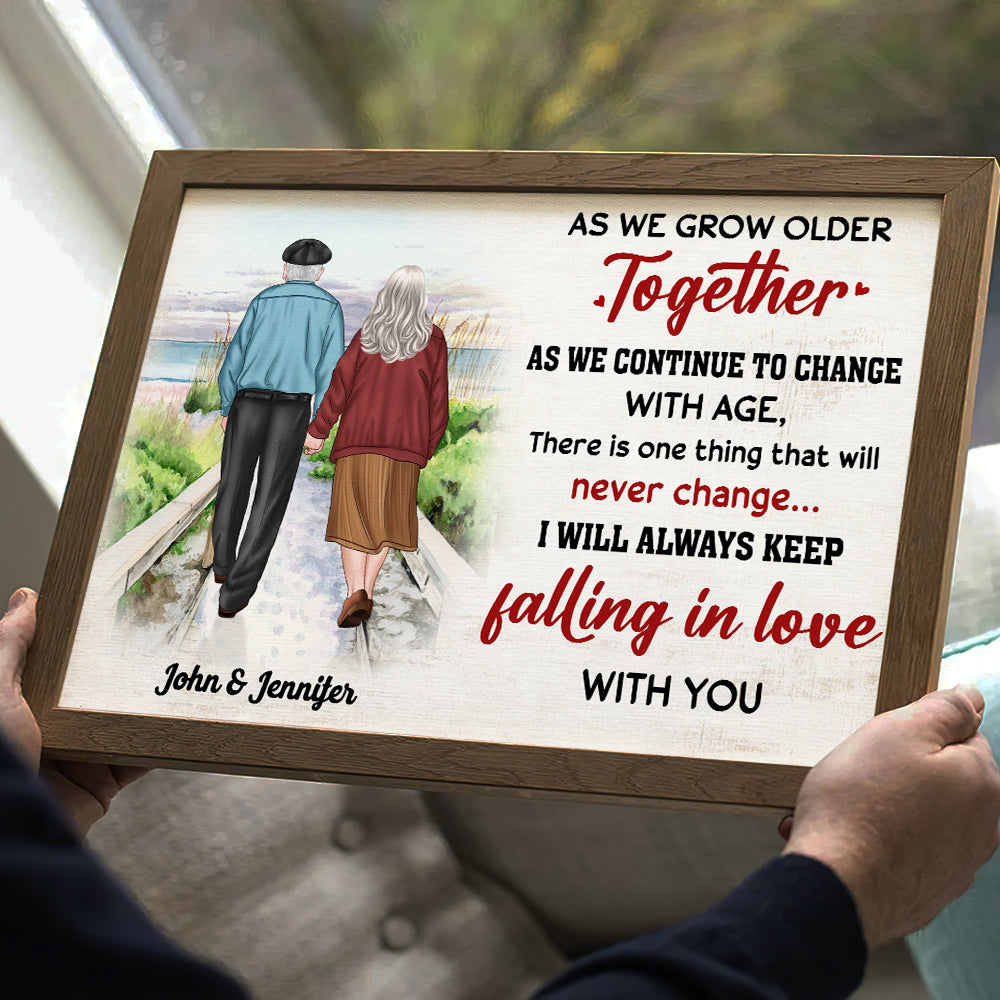 AS WE GROW OLDER
Together
AS WE CONTINUE TO CHANGE
WITH AGE,
There is one thing that will
never change...
I WILL ALWAYS KEEP
falling in love
WITH YOU
John & Jennifer